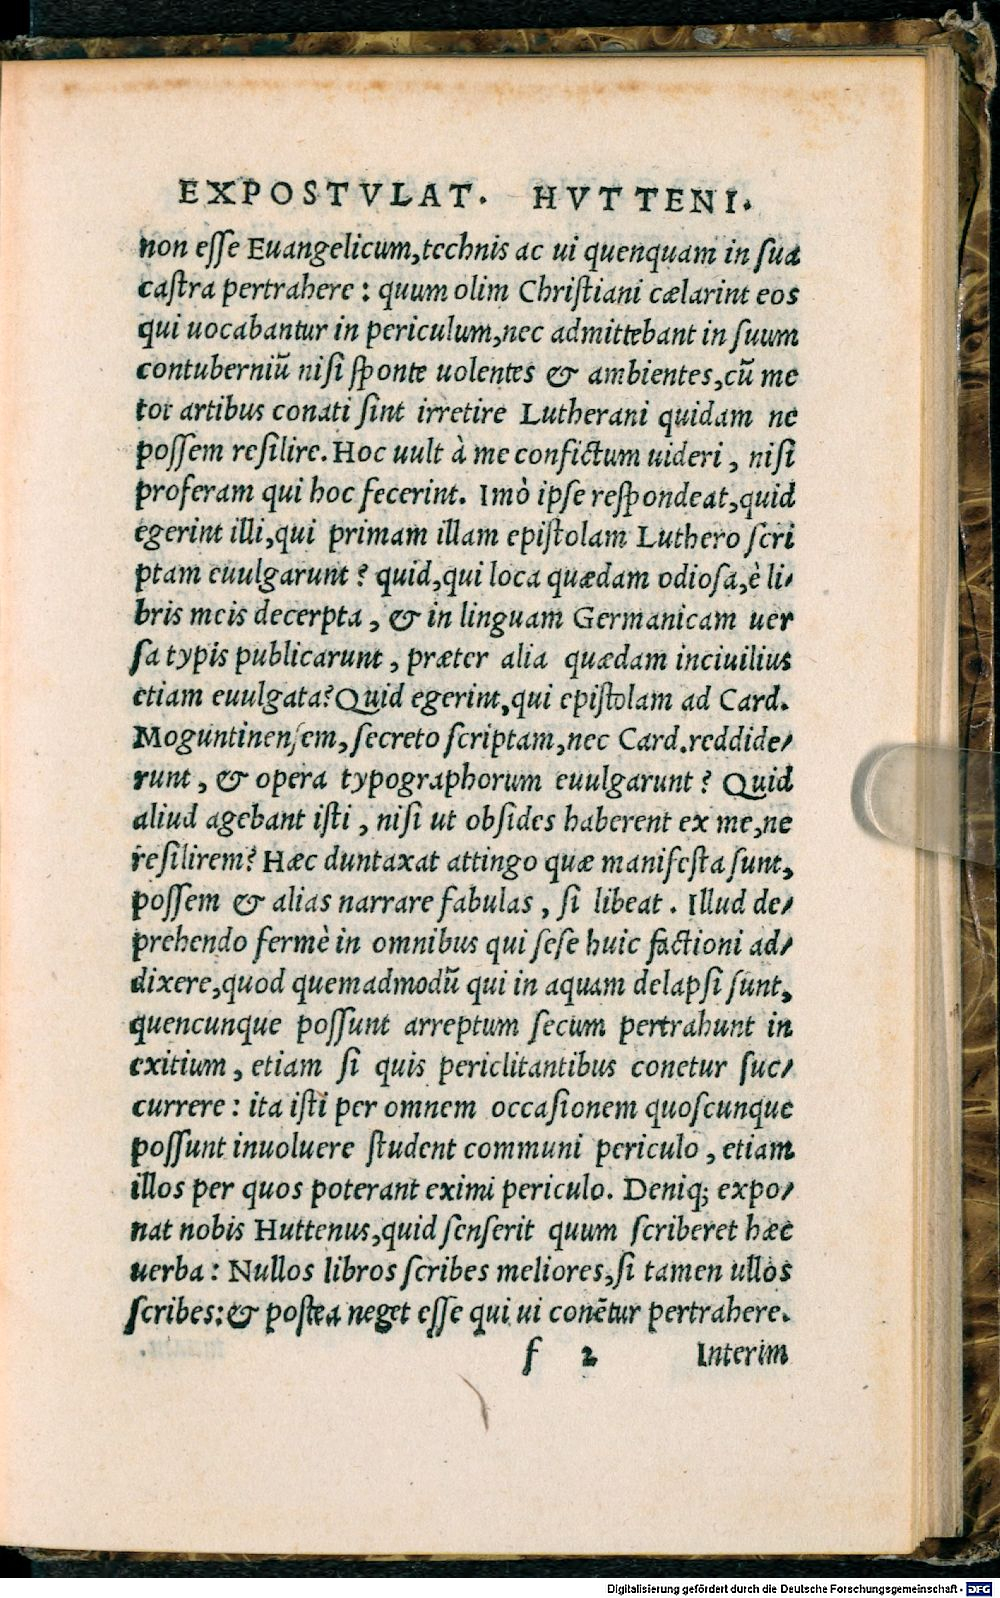 EXPOSTVLAT. HVTTENI.
non esse Euangelicum,technis ac ui quenquam in sua
castra pertrahere : quum olim Christiani cælarint eos
qui uocabantur in periculum,nec admittebant in suum
contuberniũ nisi sponte uolentes & ambientes,cũ me
tot artibus conati sint irretire Lutherani quidam ne
possem resilire. Hoc uult à me confictum uideri, nisi
proferam qui hoc fecerint. Imò ipse respondeat,quid
egerint illi,qui primam illam epistolam Luthero scri
ptam euulgarunt? quid,qui loca quædam odiosa,è li/
bris meis decerpta, & in linguam Germanicam uer
sa typis publicarunt, præter alia quædam inciuilius
etiam euulgata? Quid egerint,qui epistolam ad Card.
Moguntinensem,secreto scriptam,nec Card.reddide/
runt, & opera typographorum euulgarunt? Quid
aliud agebant isti, nisi ut obsides haberent ex me,ne
resilirem? Hæc duntaxat attingo quæ manifesta sunt,
possem & alias narrare fabulas, si libeat. Illud de/
prehendo fermè in omnibus qui sese huic factioni ad/
dixere,quod quemadmodũ qui in aquam delapsi sunt,
quencunque possunt arreptum secum pertrahunt in
exitium, etiam si quis periclitantibus conetur suc/
currere : ita isti per omnem occasionem quoscunque
possunt inuoluere student communi periculo, etiam
illos per quos poterant eximi periculo. Deniq; expo/
nat nobis Huttenus,quid senserit quum scriberet hæc
uerba : Nullos libros scribes meliores,si tamen ullos
scribes: & postea neget esse qui ui conẽtur pertrahere.
f 2 Interim
Digitalisierung gefördert durch die Deutsche Forschungsgemeinschaft - DFG